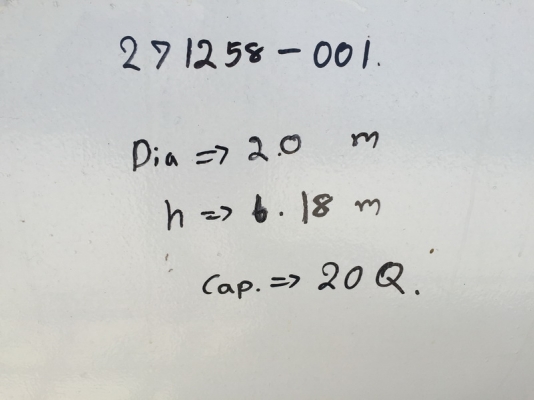 271258-001.
Dia => 2.0 m
h => 6.18 m
Cap. => 20 Q.